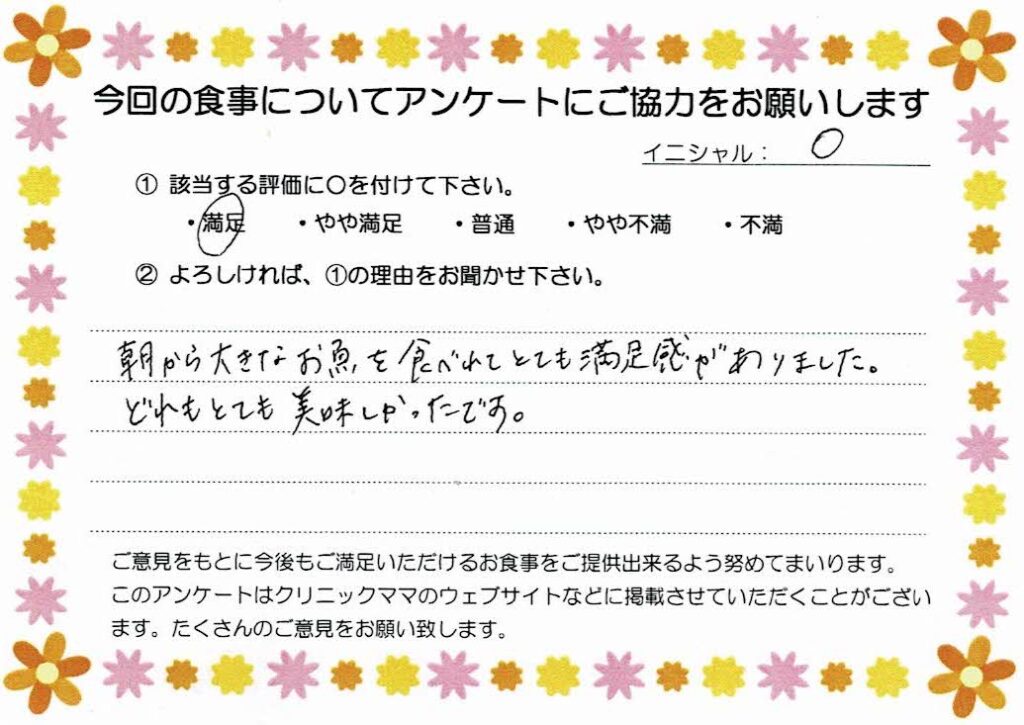 今回の食事についてアンケートにご協力をお願いします
イニシャル： O
① 該当する評価に〇を付けて下さい。
・満足 ・やや満足 ・普通 ・やや不満 ・不満
② よろしければ、①の理由をお聞かせ下さい。
朝から大きなお魚を食べれてとても満足感がありました。
どれもとても美味しかったです。
ご意見をもとに今後もご満足いただけるお食事をご提供出来るよう努めてまいります。
このアンケートはクリニックママのウェブサイトなどに掲載させていただくことがござい
ます。たくさんのご意見をお願い致します。